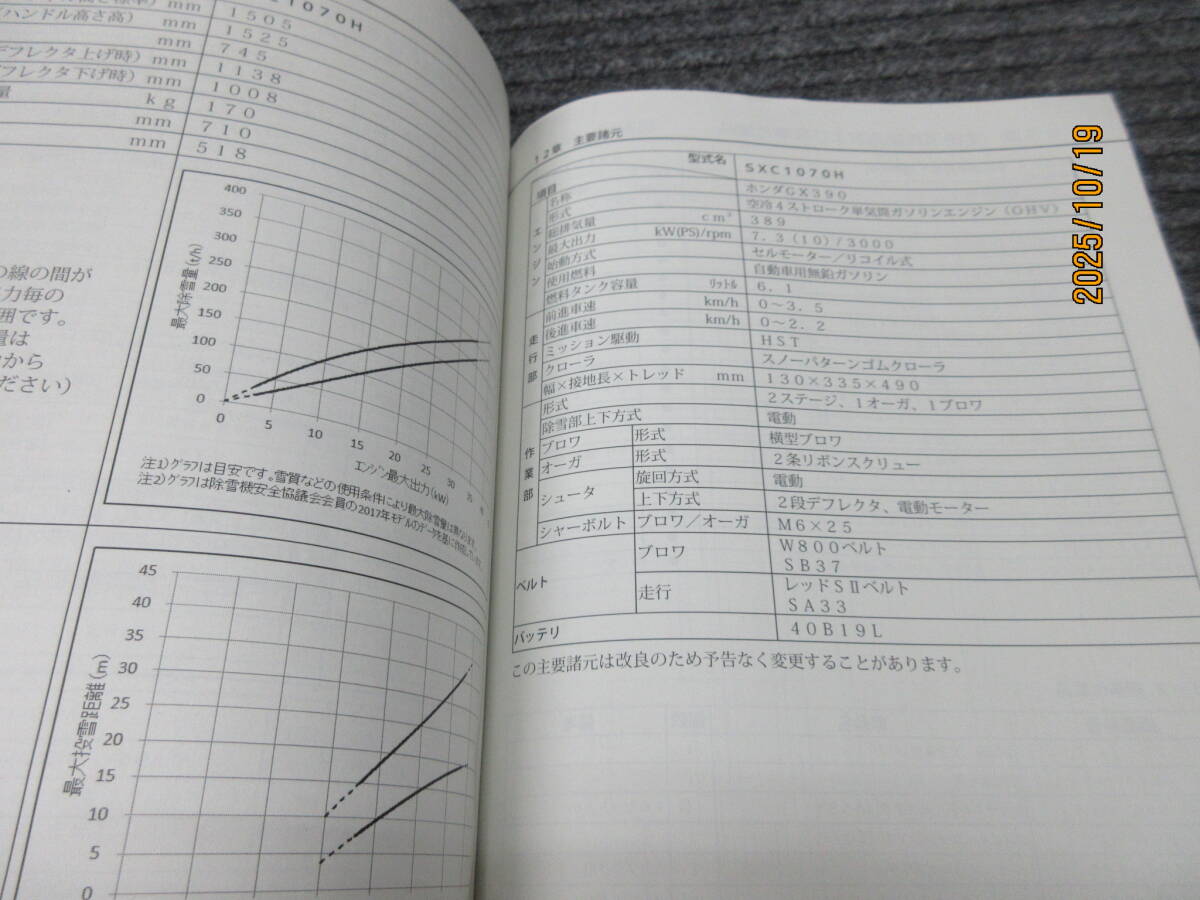 C1070H
mm 1505
ハンドル高さ高) mm 1525
mm 745
デフレクタ上げ時) mm 1138
フレクタ下げ時) mm 1008
量 kg 170
mm 710
mm 518
の線の間が
力毎の
囲です。
量は
から
ださい)
最大除雪量(t/h)
400
350
300
250
200
150
100
50
0
0 5 10 15 20 25
エンジン最大出力(kW)
注1)グラフは目安です。雪質などの使用条件により最大除雪量は異なります。
注2)グラフは除雪機安全協議会会員の2017年モデルのデータを基に作成しています。
最大投雪距離(m)
45
40
35
30
25
20
15
10
5
0
12章 主要諸元
項目 型式名 SXC1070H
エンジン
名称 ホンダGX390
形式 空冷4ストローク単気筒ガソリンエンジン(OHV)
総排気量 cm³ 389
最大出力 kW(PS)/rpm 7.3(10)/3000
始動方式 セルモーター/リコイル式
使用燃料 自動車用無鉛ガソリン
燃料タンク容量 リットル 6.1
走行部
前進車速 km/h 0~3.5
後進車速 km/h 0~2.2
ミッション駆動 HST
クローラ スノーパターンゴムクローラ
幅×接地長×トレッド mm 130×335×490
作業部
形式 2ステージ、1オーガ、1ブロワ
除雪部上下方式 電動
ブロワ 形式 横型ブロワ
オーガ 形式 2条リボンスクリュー
シュータ 旋回方式 電動
上下方式 2段デフレクタ、電動モーター
シャーボルト ブロワ/オーガ M6×25
ベルト ブロワ W800ベルト
SB37
走行 レッドSⅡベルト
SA33
バッテリ 40B19L
この主要諸元は改良のため予告なく変更することがあります。
2025/10/19